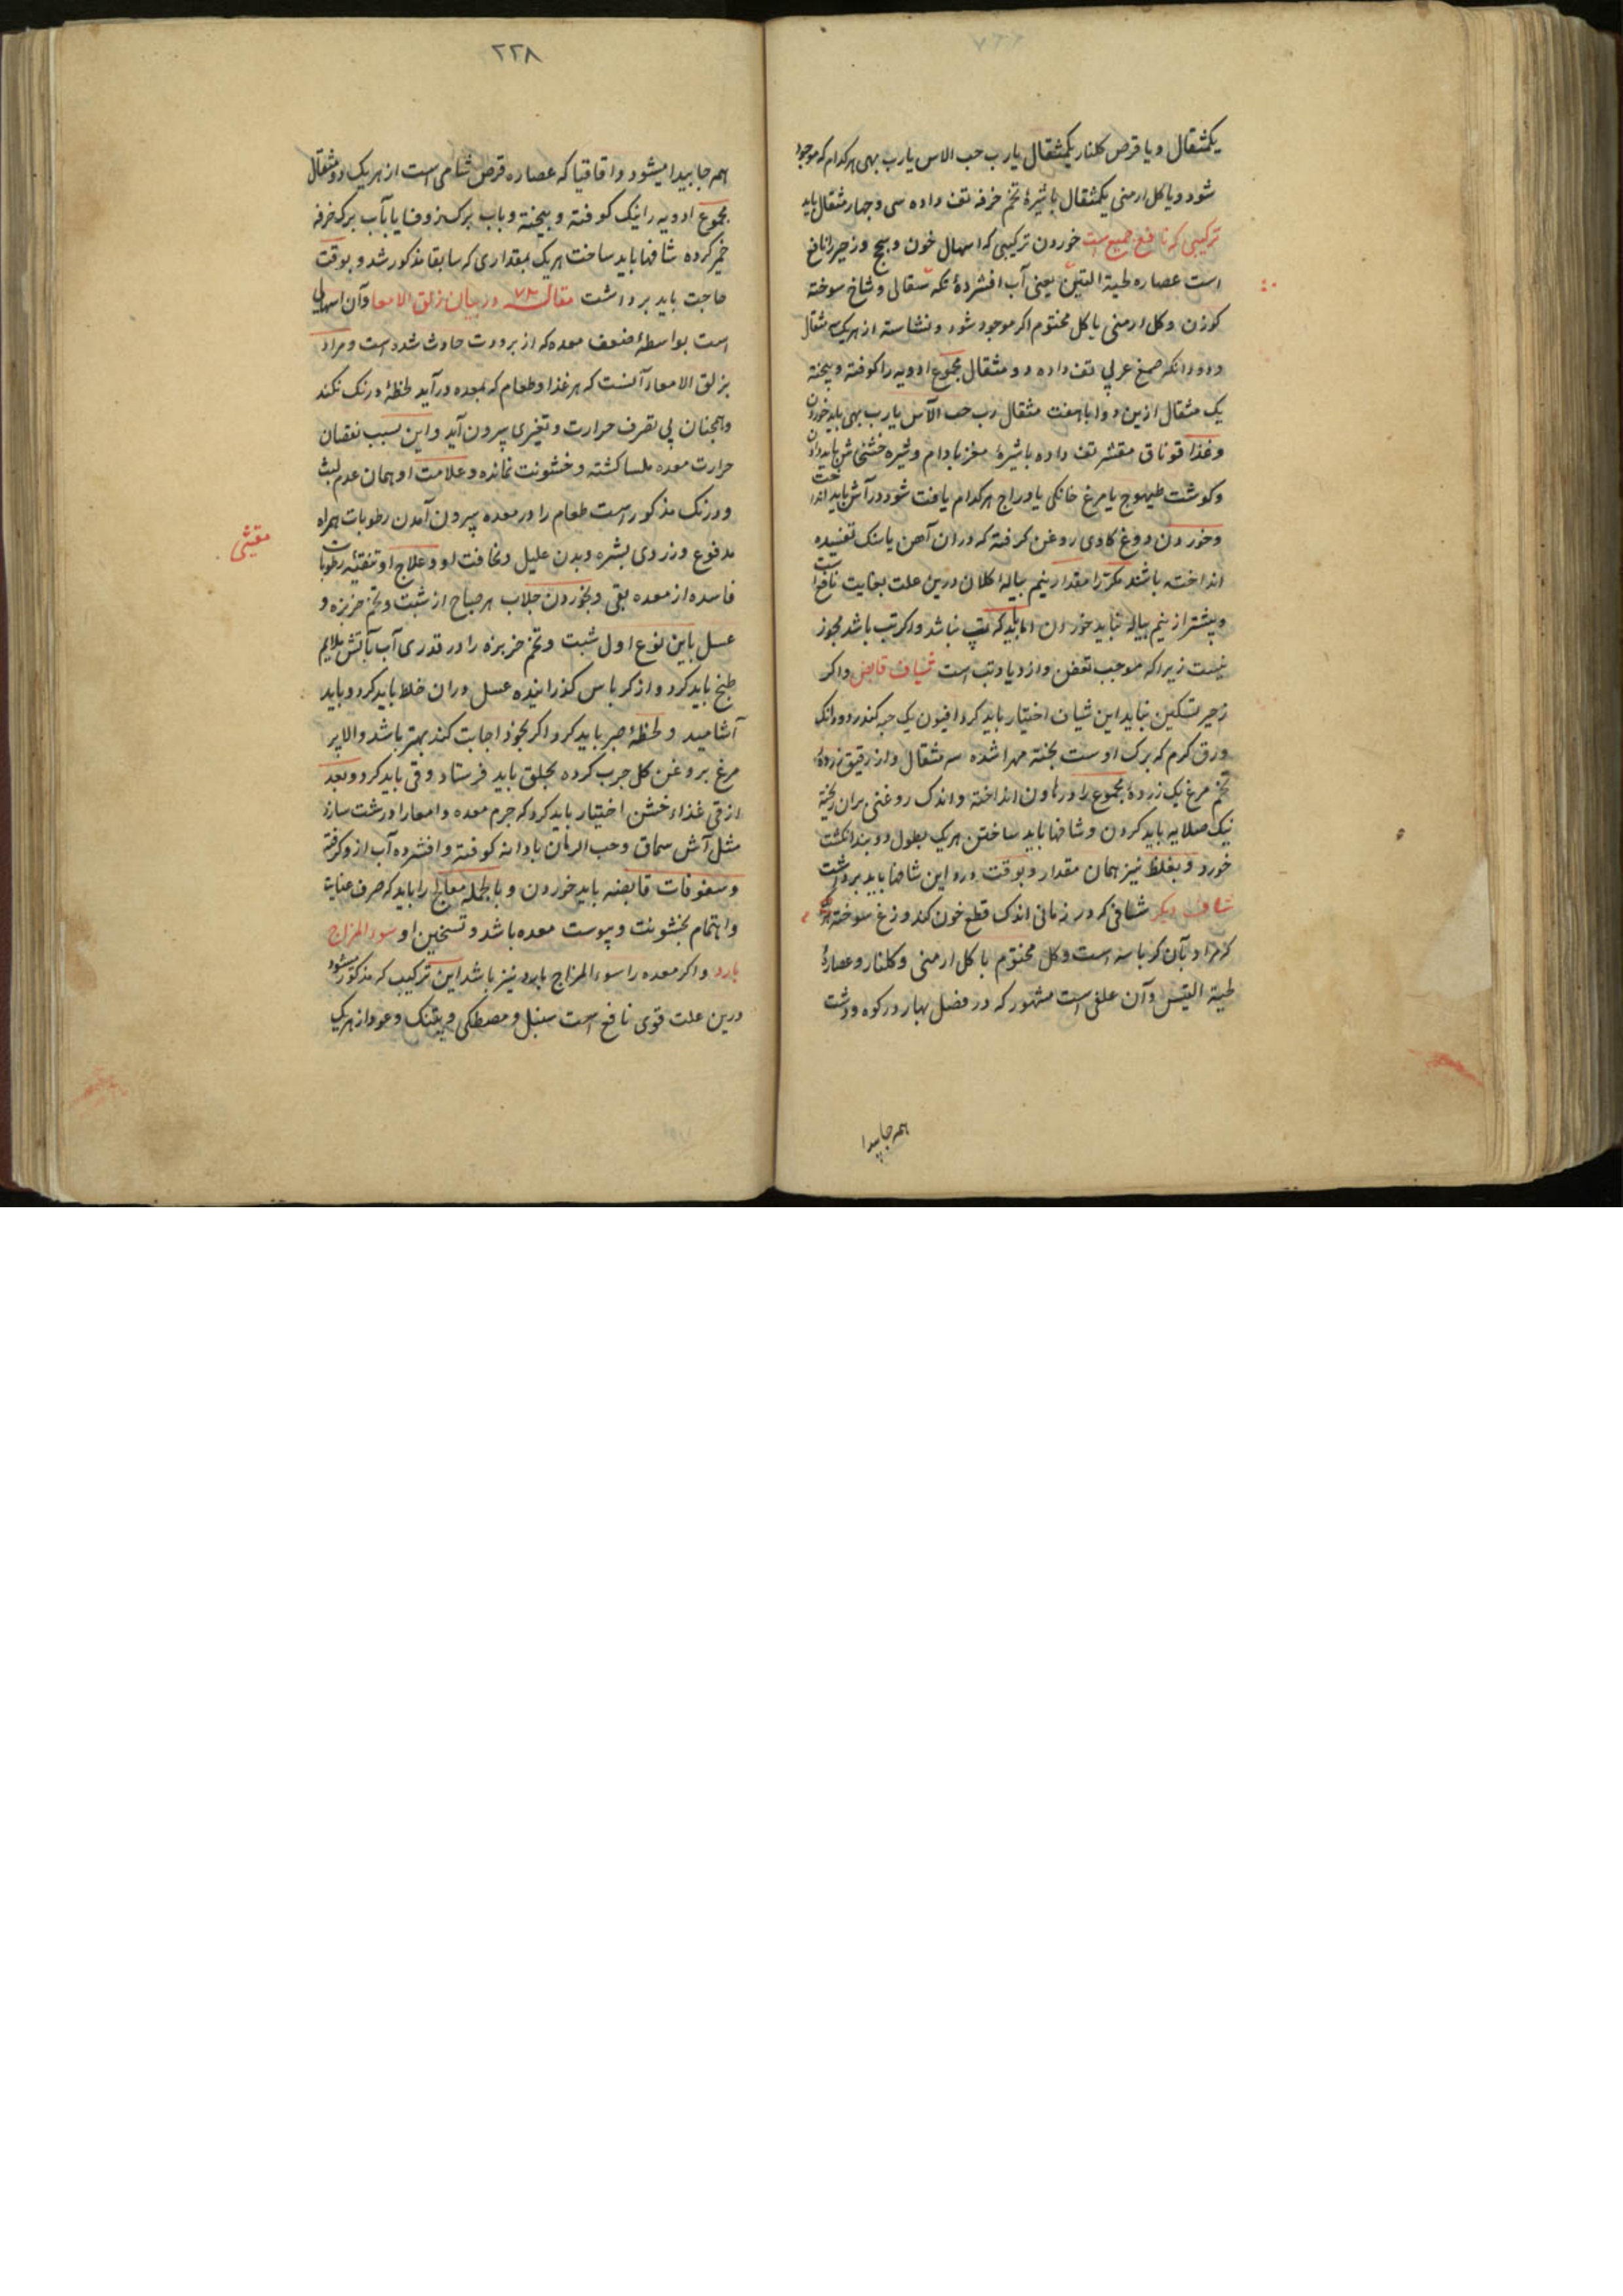 یکمثقال و یا قرص کلنار یکمثقال یا رب حب الاس یا رب بهی هرکدام که موجود
شود و یا کل ارمنی یکمثقال با شیرهٔ تخم خرفه تف داده سی و چهار مثقال باید
ترکیبی که نافع جمیع است خوردن ترکیبی که اسهال خون و سحج و زحیر را نافع
است عصاره لحیة التیس یعنی آب افشردهٔ شقالی و شاخ سوخته
کوزن و کل ارمنی یا کل مختوم اکر موجود شود و نشاسته از هریک سه مثقال
و دو دانکه صمغ عربی تف داده دو مثقال مجموع ادویه را کوفته و بیخته
یک مثقال ازین دوا با هفت مثقال رب حب الآس یا رب بهی باید خوردن
و غذا قوناق مقشر تف داده با شیرهٔ مغز بادام و شیره خشخاش باید دادن
و کوشت طیهوج یا مرغ خانکی یا دراج هرکدام یافت شود در آش باید انداخت
و خوردن دوغ کاوی روغن کرفته که دران آهن یا سنک تفسیده
انداخته باشند مکرر مقدار نیم پیاله کلان درین علت بغایت نافع است
و بیشتر از نیم پیاله نباید خوردن اما باید که تب نباشد و اکر تب باشد مجوز
نیست زیرا که موجب تعفن و ازدیاد تب است شیاف قابض و اکر
زحیر تسکین نیابد این شیاف اختیار باید کرد افیون یک حبه کندر دو دانک
ورق کرم که برک اوست پخته مهرا شده سه مثقال و از رقیق زردهٔ
تخم مرغ یک زرده مجموع را در هاون انداخته و اندک روغنی بران ریخته
نیک صلایه باید کردن و شافها باید ساختن هریک بطول دو بند انکشت
خورد و بغلظ نیز همان مقدار و بوقت درد این شافها باید برداشت
شاف دیکر شافی که در زمانی اندک قطع خون کند وزغ سوخته
و آن کرباسه است و کل مختوم یا کل ارمنی و کلنار و عصارهٔ
لحیة التیس و آن علفی است مشهور که در فصل بهار در کوه و دشت
همه جا پیدا
۲۲۸
همه جا پیدا میشود و اقاقیا که عصاره قرص شامی است از هریک دو مثقال
مجموع ادویه را نیک کوفته و بیخته و باب برک یا بآب برک خرفه
خمیر کرده شافها باید ساخت هریک بمقداری که سابقا مذکور شد و بوقت
حاجت باید برداشت مقاله ۷۸ در بیان زلق الامعا و آن اسهالی
است بواسطهٔ ضعف معده که از برودت حادث شده است و مراد
بزلق الامعاء آنست که هر غذا و طعام که بمعده درآید لحظهٔ درنک نکند
و همچنان بی تصرف حرارت و تغیری بیرون آید و این بسبب نقصان
حرارت معده ملسا کشته و خشونت نمانده و علامت او همان عدم لبث
و درنک مذکور است طعام را در معده بیرون آمدن رطوبات همراه
مدفوع و زردی بشره و بدن علیل و نحافت او و علاج او تنقیهٔ رطوبات
فاسده از معده بقی و بخوردن جلاب هر صباح از شبت و تخم خربزه و
عسل باین نوع اول شبت و تخم خربزه را در قدری آب بآتش ملایم
طبخ باید کرد و از کرباس کذرانیده عسل دران خلط باید کرد و باید
آشامید و لحظهٔ صبر باید کرد اکر بخود اجابت کند بهتر باشد والا پر
مرغ بروغن کل چرب کرده بحلق باید فرستاد و قی باید کرد و بعد
از قی غذاء خشن اختیار باید کرد که جرم معده و امعا را درشت سازد
مثل آش سماق و حب الرمان با دانه کوفته و افشرده آب ازو کرفته
و سفوفات قابضه باید خوردن و بالجمله معالج را باید که صرف عنایت
و اهتمام بخشونت و یبوست معده باشد و تسخین او سوء المزاج
بارد و اکر معده را سوء المزاج بارد نیز باشد این ترکیب که مذکور میشود
درین علت قوی نافع است سنبل و مصطکی و عود از هریک